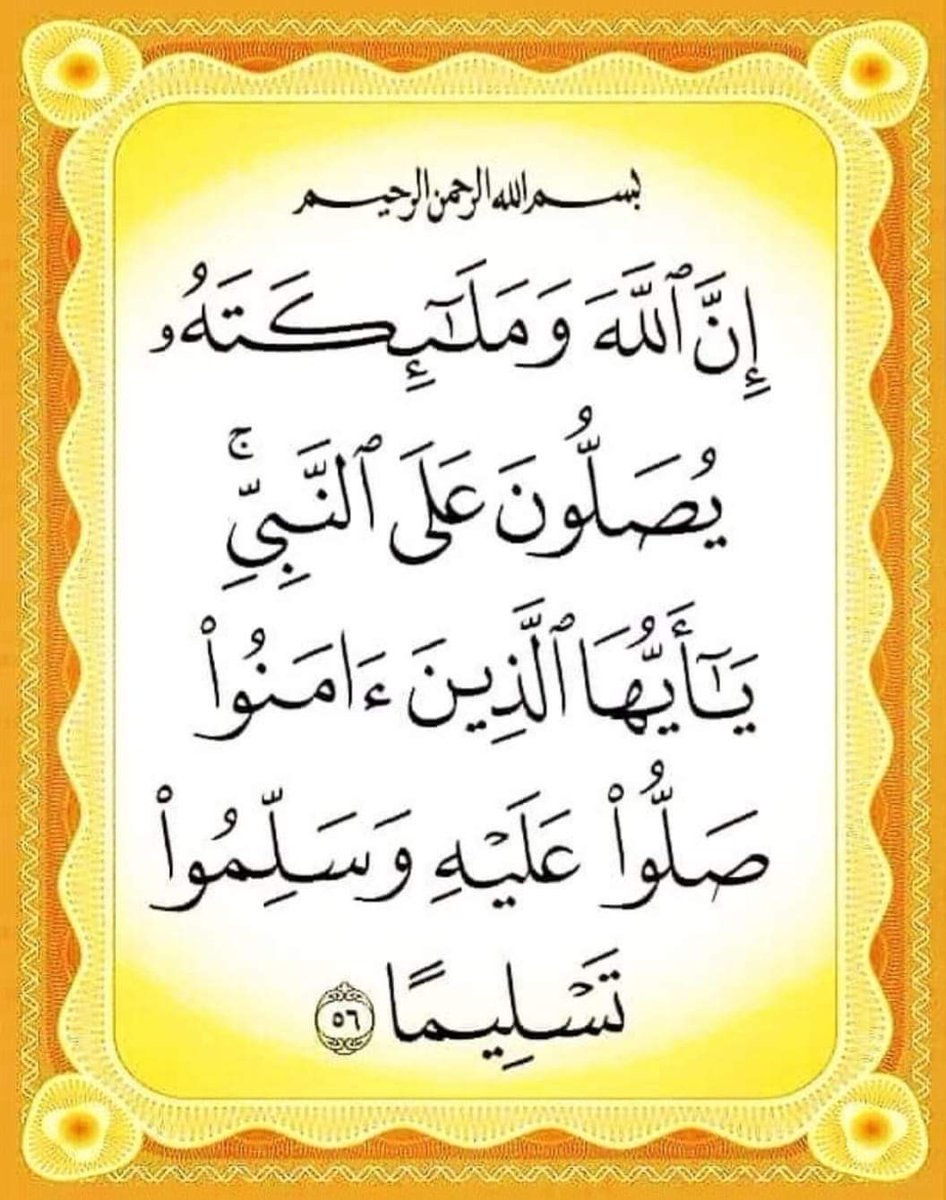 بسم الله الرحمن الرحيم
إِنَّ ٱللَّهَ وَمَلَـٰٓئِكَتَهُۥ
يُصَلُّونَ عَلَى ٱلنَّبِىِّۚ
يَـٰٓأَيُّهَا ٱلَّذِينَ ءَامَنُوا۟
صَلُّوا۟ عَلَيْهِ وَسَلِّمُوا۟
تَسْلِيمًا ٥٦